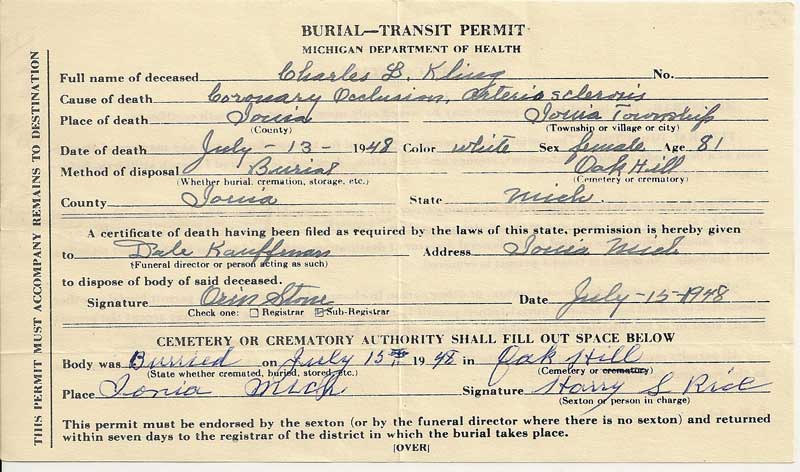 BURIAL—TRANSIT PERMIT
MICHIGAN DEPARTMENT OF HEALTH
THIS PERMIT MUST ACCOMPANY REMAINS TO DESTINATION
Full name of deceased Charles L. Kling No.
Cause of death Coronary Occlusion, Arteriosclerosis
Place of death Ionia Ionia Township
(County) (Township or village or city)
Date of death July - 13 - 1948 Color white Sex female Age 81
Method of disposal Burial Oak Hill
(Whether burial, cremation, storage, etc.) (Cemetery or crematory)
County Ionia State Mich.
A certificate of death having been filed as required by the laws of this state, permission is hereby given
to Dale Kauffman Address Ionia Mich
(Funeral director or person acting as such)
to dispose of body of said deceased.
Signature Orin Stone Date July-15-1948
Check one: Registrar Sub-Registrar
CEMETERY OR CREMATORY AUTHORITY SHALL FILL OUT SPACE BELOW
Body was Burried on July 15th 1948 in Oak Hill
(State whether cremated, buried, stored, etc.) (Cemetery or crematory)
Place Ionia Mich. Signature Harry S Rice
(Sexton or person in charge)
This permit must be endorsed by the sexton (or by the funeral director where there is no sexton) and returned
within seven days to the registrar of the district in which the burial takes place.
[OVER]